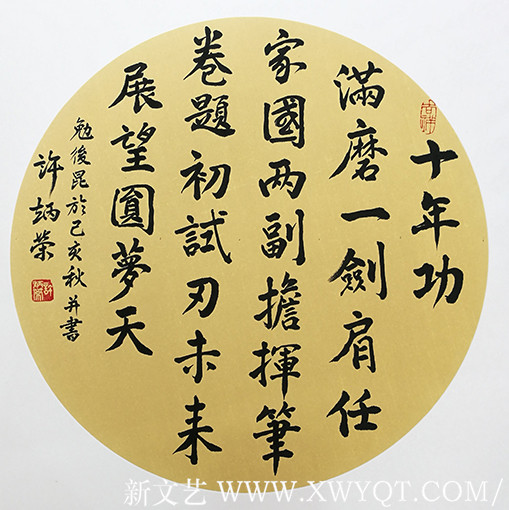 十年功
滿磨一劍肩任
家國两副擔揮筆
卷題初試刃未来
展望圓夢天
勉後昆於己亥秋并書
許炳榮
新文艺 WWW.XWYQT.COM/